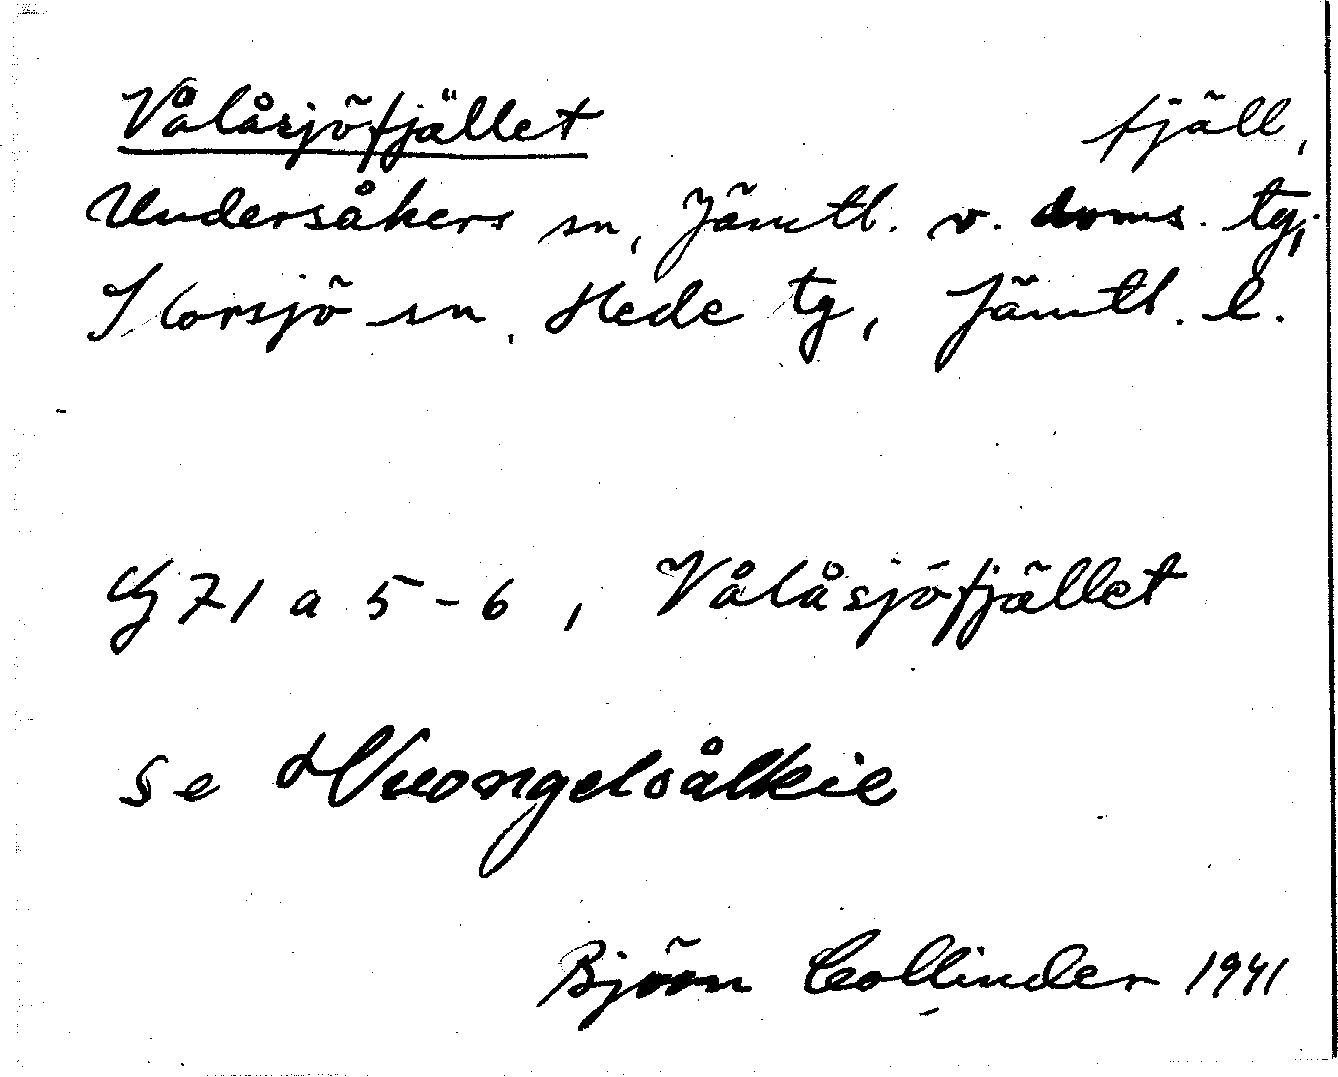 Vålåsjöfjället fjäll,
Undersåkers sn, Jämtl. v. doms. tg,
Storsjö sn, Hede tg, Jämtl. l.
G 71 a 5-6, Vålåsjöfjället
se Vuongelsålkie
Björn Collinder 1941